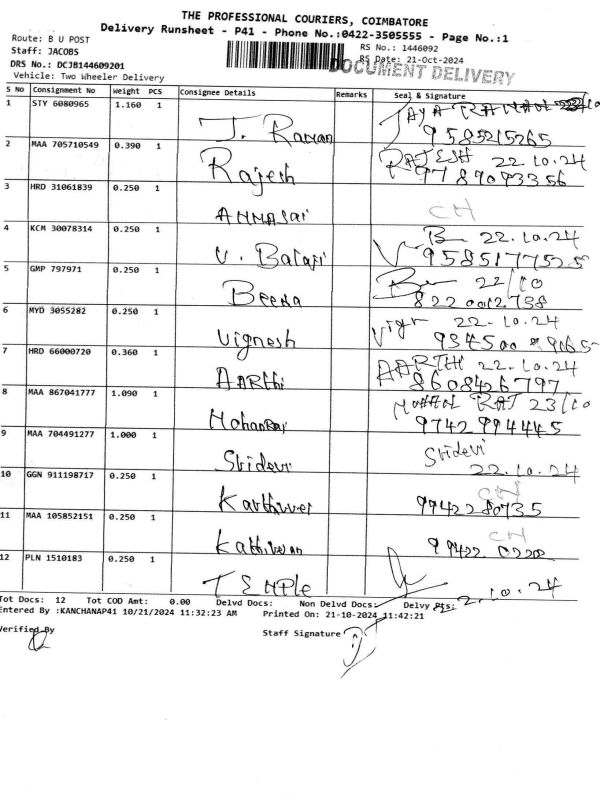 THE PROFESSIONAL COURIERS, COIMBATORE
Delivery Runsheet - P41 - Phone No.:0422-3505555 - Page No.:1
Route: B U POST
RS No.: 1446092
Staff: JACOBS
RS Date: 21-Oct-2024
DRS No.: DCJB144609201
DOCUMENT DELIVERY
Vehicle: Two Wheeler Delivery
S No Consignment No Weight PCS Consignee Details Remarks Seal & Signature
1 STY 6080965 1.160 1
J. Raman
9585215265
2 MAA 705710549 0.390 1
Rajesh RAJESH 22.10.24
3 HRD 31061839 0.250 1
CH
4 KCM 30078314 0.250 1
V. Balaji 22.10.24
9585177525
5 GMP 797971 0.250 1
Beena 22/10
6 MYD 3055282 0.250 1
Vignesh 22.10.24
7 HRD 66000720 0.360 1
AARTHI AARTHI 22.10.24
8608426797
8 MAA 867041777 1.090 1
MohanRaj MOHAN RAJ 23/10
9742994445
9 MAA 704491277 1.000 1
Sridevi Sridevi
22.10.24
10 GGN 911198717 0.250 1
CH
9942280735
11 MAA 105852151 0.250 1
CH
12 PLN 1510183 0.250 1
TEMPLE
Tot Docs: 12 Tot COD Amt: 0.00 Delvd Docs: Non Delvd Docs: Delvy Pts:
Entered By :KANCHANAP41 10/21/2024 11:32:23 AM Printed On: 21-10-2024 11:42:21
Verified By
Staff Signature